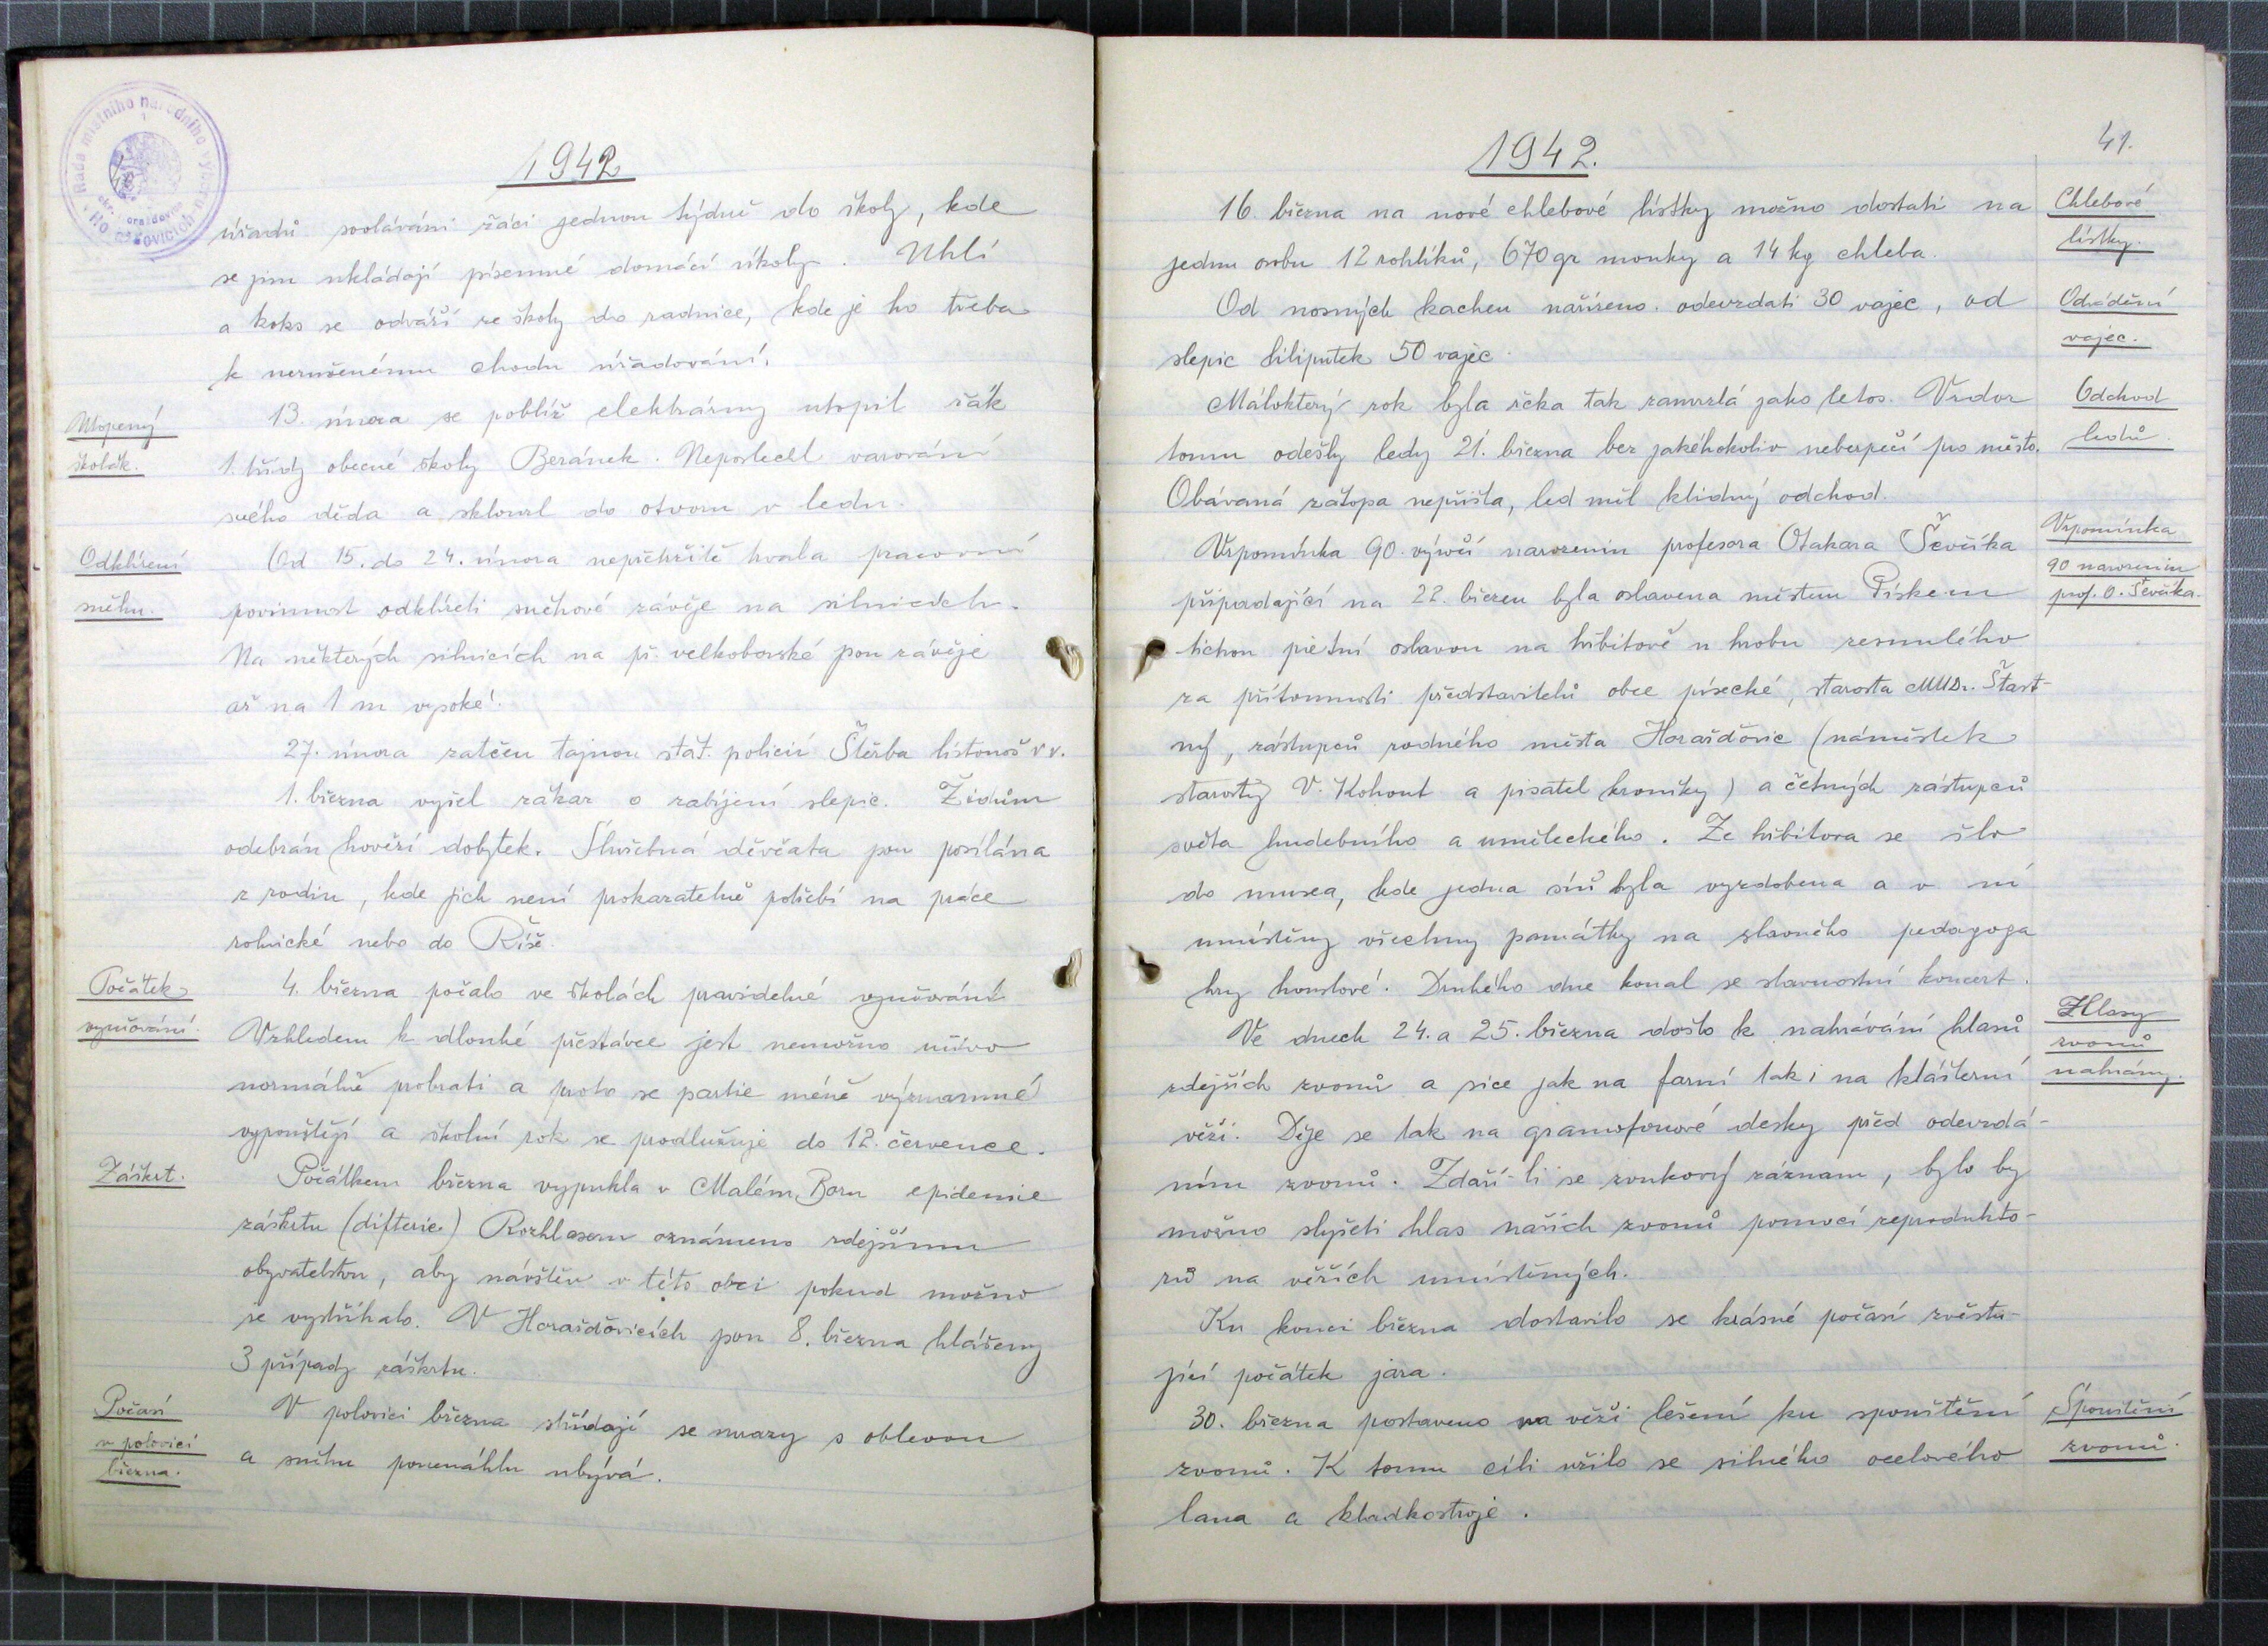 Rada místního národního výboru
1942
úřadů svolávání žáci jednou týdně do školy, kde
se jim ukládají písemné domácí úkoly. Uhlí
a koks se odváží ze školy do radnice, kde je ho třeba
k nerušenému chodu úřadování.
Utopený
školák.
13. února se poblíž elektrárny utopil žák
1. třídy obecné školy Beránek. Neposlechl varování
svého děda a sklouzl do otvoru v ledu.
Odklízení
sněhu.
Od 15. do 24. února nepřetržitě trvala pracovní
povinnost odklízeti sněhové závěje na silnicích.
Na některých silnicích na př. velkoborské jsou závěje
až na 1 m vysoké.
27. února zatčen tajnou stát. policií Štěrba listonoš v v.
1. března vyšel zákaz o zabíjení slepic. Židům
odebrán hovězí dobytek. Služebná děvčata jsou posílána
z rodin, kde jich není prokazatelně potřebí na práce
rolnické nebo do Říše.
Počátek
vyučování.
4. března počalo ve školách pravidelné vyučování
Vzhledem k dlouhé přestávce jest nemožno učivo
normálně probrati a proto se partie méně významné
vypouštějí a školní rok se prodlužuje do 12. července.
Záškrt.
Počátkem března vypukla v Malém Boru epidemie
záškrtu (difterie.) Rozhlasem oznámeno zdejšímu
obyvatelstvu, aby návštěv v této obci pokud možno
se vystříhalo. V Horažďovicích jsou 8. března hlášeny
3 případy záškrtu.
Počasí
v polovici
března.
V polovici března střídají se mrazy s oblevou
a sněhu ponenáhlu ubývá.
1942.
41.
16. března na nové chlebové lístky možno dostati na
jednu osobu 12 rohlíků, 670 gr mouky a 14 kg chleba.
Chlebové
lístky.
Od nosných kachen nařízeno odevzdati 30 vajec, od
slepic liliputek 50 vajec.
Odvádění
vajec.
Málokterý rok byla řeka tak zamrzlá jako letos. Vzdor
tomu odešly ledy 21. března bez jakéhokoliv nebezpečí pro město.
Obávaná zátopa nepřišla, led měl klidný odchod.
Odchod
ledů.
Vzpomínka 90. výročí narozenin profesora Otakara Ševčíka
připadající na 22. březen byla oslavena městem Pískem
tichou pietní oslavou na hřbitově u hrobu zesnulého
za přítomnosti představitelů obce písecké, starosta MUDr. Šťast-
ný, zástupců rodného města Horažďovic (náměstek
starosty V. Kohout a pisatel kroniky) a četných zástupců
světa hudebního a uměleckého. Ze hřbitova se šlo
do musea, kde jedna síň byla vyzdobena a v ní
umístěny všechny památky na slavného pedagoga
hry houslové. Druhého dne konal se slavnostní koncert.
Vzpomínka
90 narozenin
prof. O. Ševčíka.
Ve dnech 24. a 25. března došlo k nahrávání hlasů
zdejších zvonů a sice jak na farní tak i na klášterní
věži. Děje se tak na gramofonové desky před odevzdá-
ním zvonů. Zdaří-li se zvukový záznam, bylo by
možno slyšeti hlas našich zvonů pomocí reprodukto-
rů na věžích umístěných.
Hlasy
zvonů
nahrány.
Ku konci března dostavilo se krásné počasí zvěstu-
jící počátek jara.
30. března postaveno na věži lešení ku spouštění
zvonů. K tomu cíli užilo se silného ocelového
lana a kladkostroje.
Spouštění
zvonů.